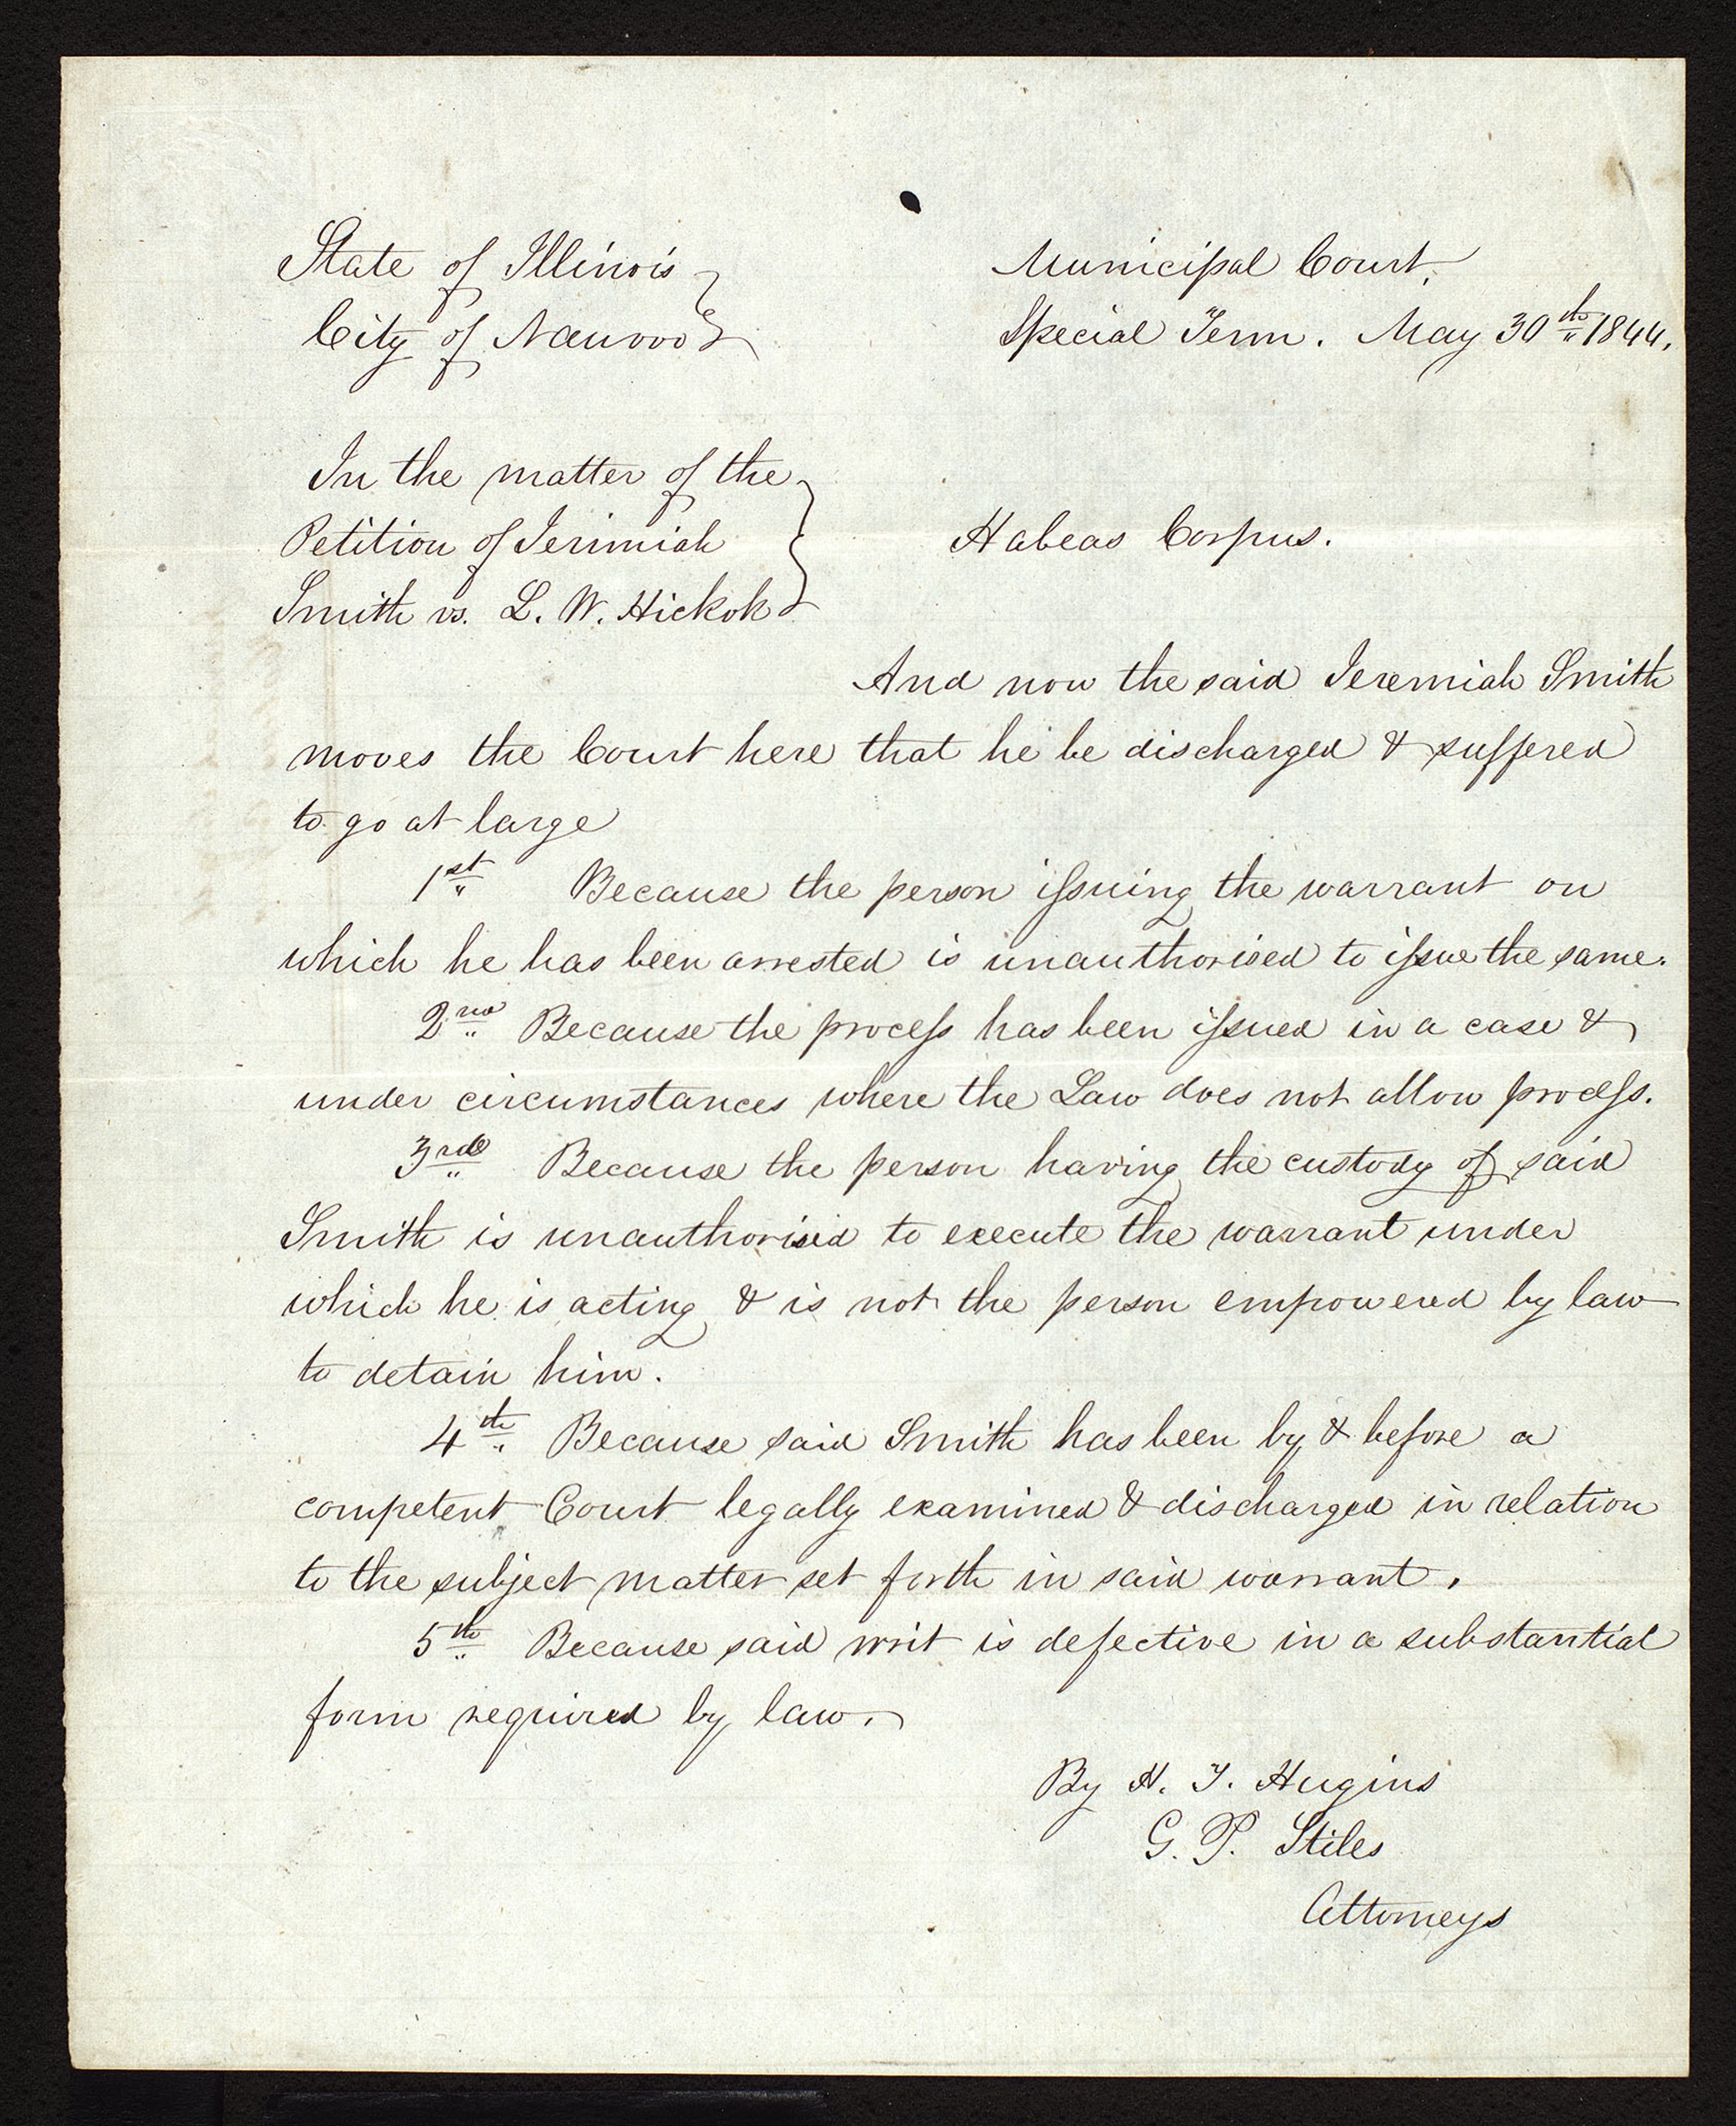 State of Illinois } Municipal Court,
City of Nauvoo } Special Term. May 30th 1844.
In the matter of the }
Petition of Jerimiah } Habeas Corpus.
Smith vs. L. W. Hickok }
And now the said Jeremiah Smith
moves the Court here that he be discharged & suffered
to go at large
1st Because the person issuing the warrant on
which he has been arrested is unauthorised to issue the same.
2nd Because the process has been issued in a case &
under circumstances where the Law does not allow process.
3rd Because the person having the custody of said
Smith is unauthorised to execute the warrant under
which he is acting & is not the person empowered by law
to detain him.
4th Because said Smith has been by & before a
competent Court legally examined & discharged in relation
to the subject matter set forth in said warrant.
5th Because said writ is defective in a substantial
form required by law.
By H. T. Hugins
G. P. Stiles
Attorneys